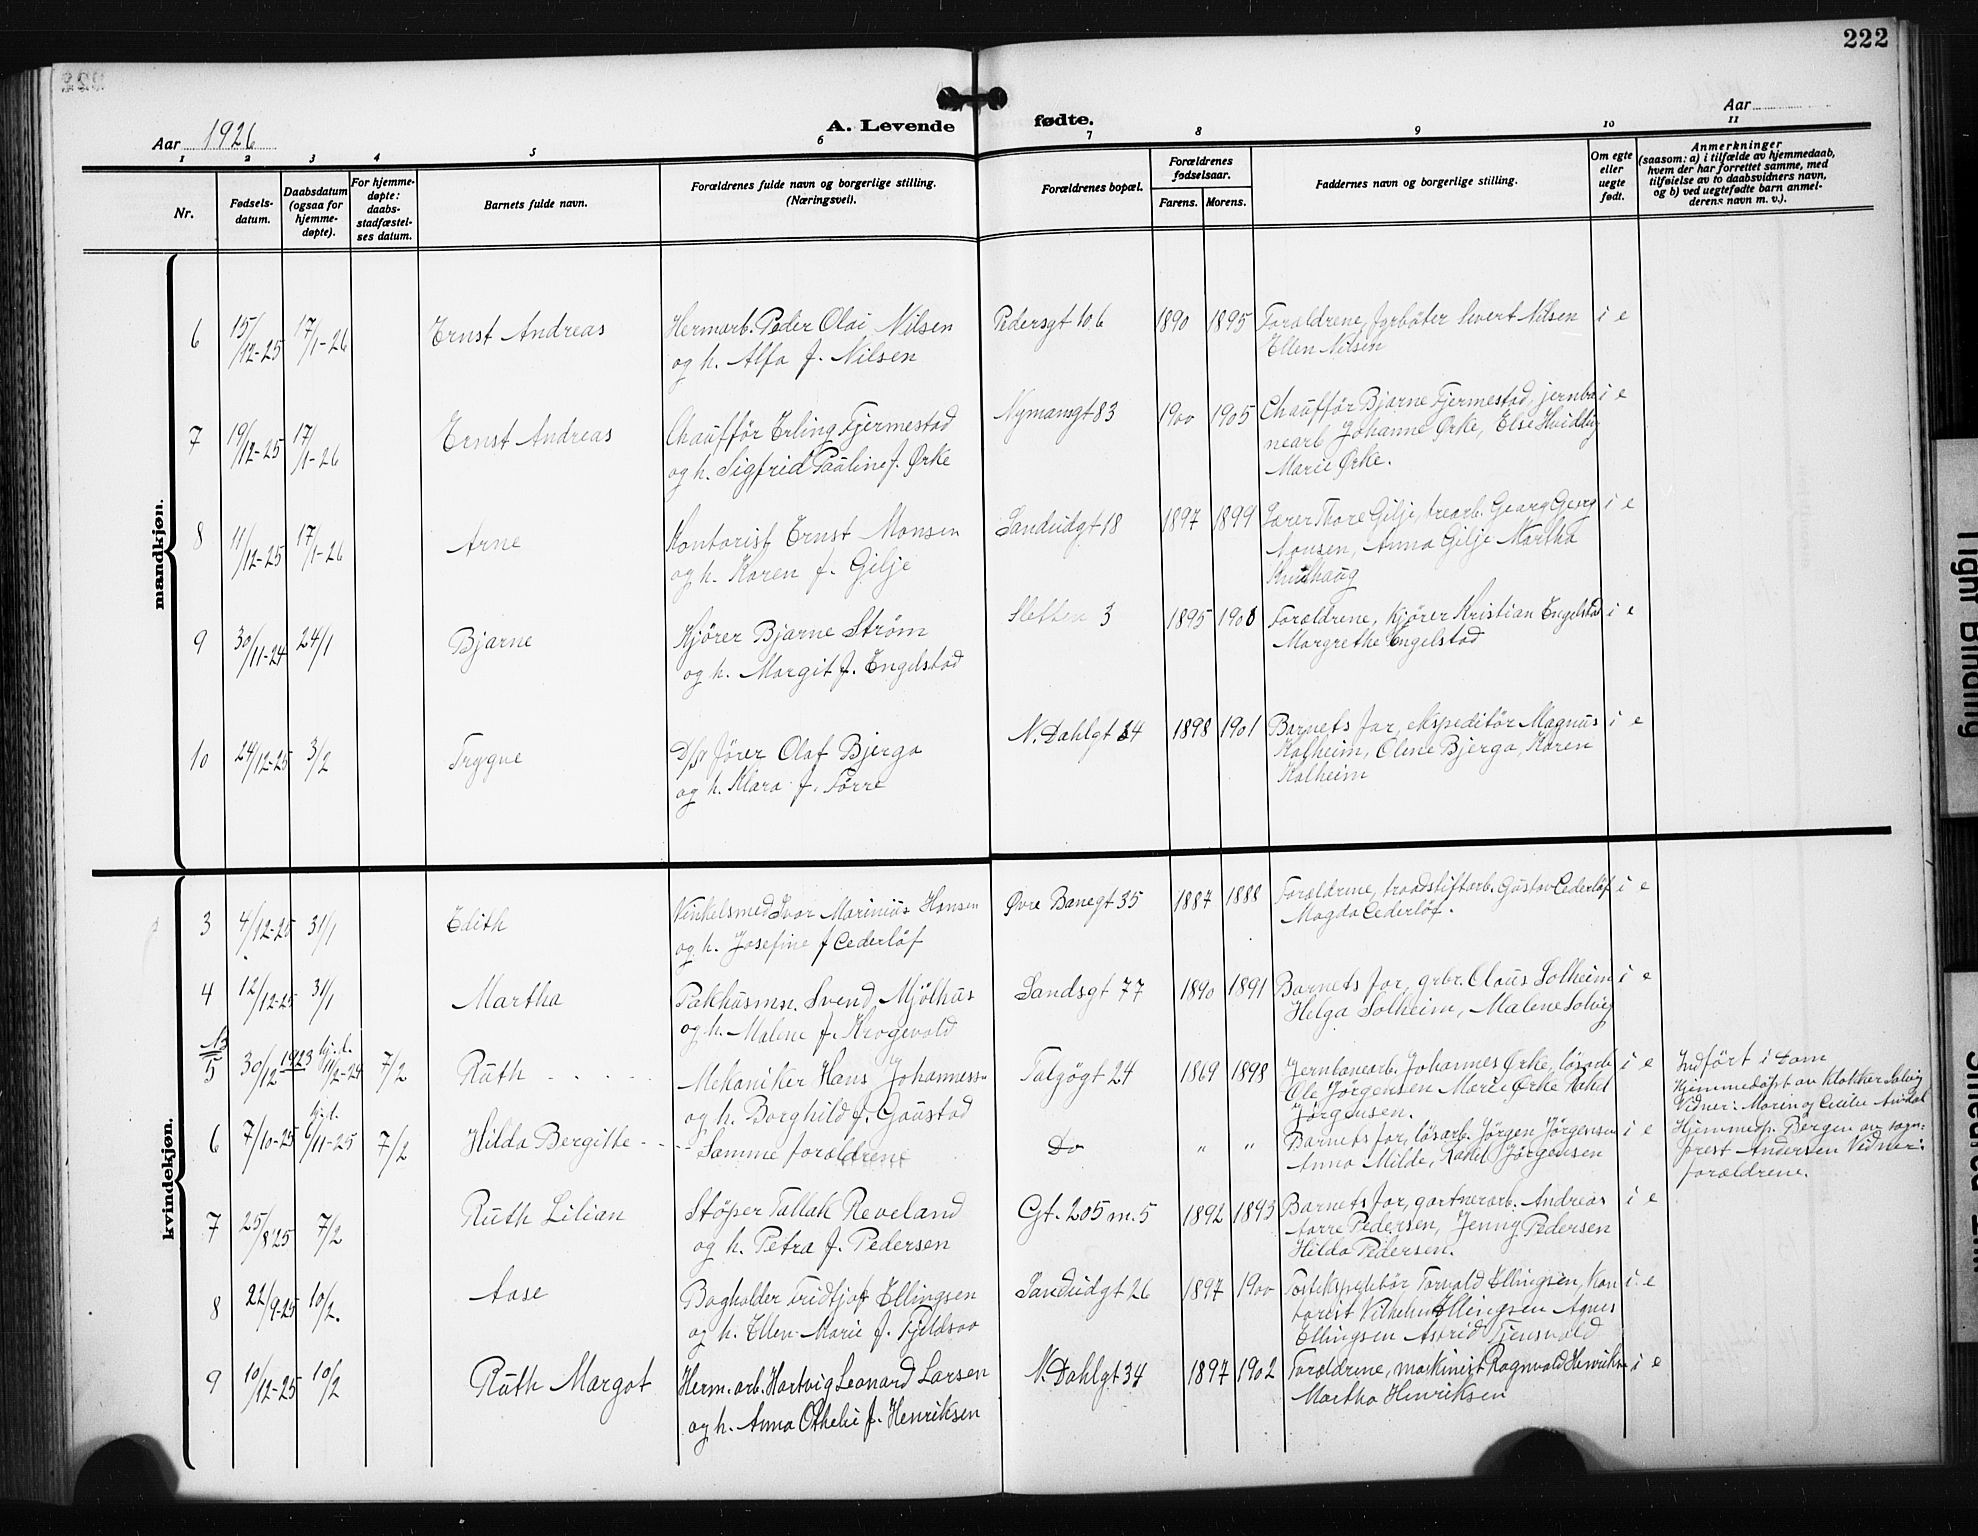 222
Aar 1926
A. Levende fødte.
Aar
1 2 3 4 5 6 7 8 9 10 11
Nr.
Fødsels-
datum.
Daabsdatum
(ogsaa for
hjemme-
døpte).
For hjemme-
døpte:
daabs-
stadfæstel-
ses datum.
Barnets fulde navn.
Forældrenes fulde navn og borgerlige stilling.
(Næringsvei).
Forældrenes bopæl.
Forældrenes
fødselsaar.
Farens. Morens.
Faddernes navn og borgerlige stilling.
Om egte
eller
uegte
født.
Anmerkninger
(saasom: a) i tilfælde av hjemmedaab,
hvem der har forrettet samme, med
tilføielse av to daabsvidners navn,
og b) ved uegtefødte barn anmel-
derens navn m. v.).
mandkjøn.
6 15/12-25 17/1-26 Ernst Andreas Hermarb. Peder Olai Nilsen Pedersgt 106 1890 1895 Forældrene, Nilsen i e
og h. Alfa f. Nilsen Ellen Nilsen
7 19/12-25 17/1-26 Ernst Andreas Chauffør Erling Fjermestad Nymansgt 83 1900 1905 Chauffør Bjarne Fjermestad, jernba i e
og h. Sigfrid Pauline f. Ørke nearb Johanne Ørke, Else Hviddig
Marie Ørke.
8 11/12-25 17/1-26 Arne Kontorist Ernst Monsen Sandeidgt 18 1897 1899 Lærer Thore Gilje, trearb. Georg Georg i e
og h. Karen f. Gilje Monsen, Anna Gilje Martha
9 30/11-24 24/1 Bjarne Kjører Bjarne Strøm Sletten 3 1895 1900 Forældrene, kjører Kristian Engelstad i e
og h. Margit f. Engelstad Margrethe Engelstad
10 24/12-25 3/2 Trygve D/Sfører Olaf Bjerga N. Dahlgt 34 1898 1901 Barnets far, ekspeditør Magnus i e
og h. Klara f. Førre Kalheim, Oline Bjerga, Karen
Kalheim
kvindekjøn.
3 4/12-25 31/1 Edith Vinkelsmed Ivar Marinius Hansen Øvre Banegt 35 1887 1888 Forældrene, traadstiftarb. Gustav Cederløf i e
og h. Josefine f Cederløf Magda Cederløf.
4 12/12-25 31/1 Martha Pakhusmn. Svend Mjølhus Sandsgt 77 1890 1891 Barnets far, grbr. Olaus Solheim i e
og h. Malene f. Krogevold Helga Solheim, Malene Solvig
5 30/12 1923 hj.d. 11/2-24 7/2 Ruth Mekaniker Hans Johanness- Talgøgt 24 1869 1898 Jernbanearb. Johannes Ørke, løsarb i e Indført i Dom
og h. Borghild f. Gaustad Ole Jørgensen Marie Ørke Rakel Hjemmedøpt av Klokker Solvig
Jørgensen. Vidner: Marin og Cecilie
6 7/10-25 hj.d. 6/11-25 7/2 Hilda Bergitte -- Samme forældrene Do " " Barnets far, løsarb. Jørgen Jørgensen i e Hjemmedp. Bergen av sogn:
Anna Milde, Rakel Jørgensen prest Andersen Vidner:
forældrene.
7 25/8 25 7/2 Ruth Lilian Støper Tallak Reveland Gt. 205 m. 5 1892 1893 Barnets far, gartnerarb. Andreas i e
og h. Petra f. Pedersen Pedersen, Jenny Pedersen
Hilda Pedersen.
8 22/9-25 10/2. Aase Bogholder Fridtjof Ellingsen Sandeidgt 26 1897 1900 Postekspeditør Torvald Ellingsen, Kon i e
og h. Ellen Marie f. Fjeldsaa torist Vilhelm Ellingsen Agnes
Ellingsen Astrid Tjensvold
9 10/12-25 10/2 Ruth Margot Herm. arb. Hartvig Leonard Larsen N. Dahlgt 34 1897 1902 Forældrene, maskinist Ragnvald Henriksn i e
og h. Anna Othelie f. Henriksen Martha Henriksen
Tight Binding